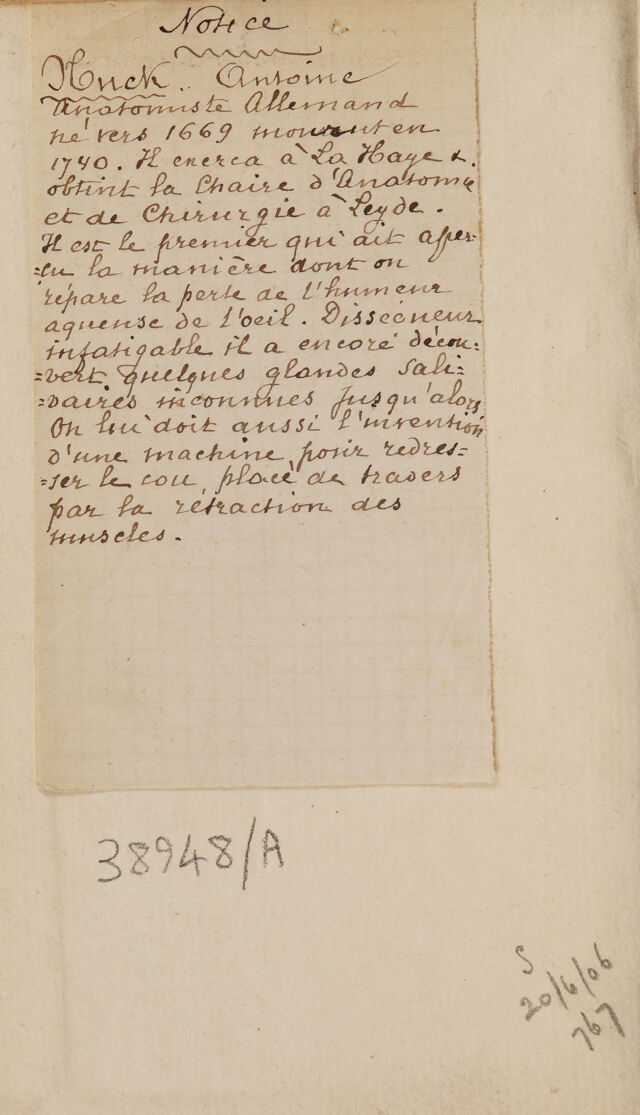 Notice
Nuck. Antoine
Anatomiste Allemand
né vers 1669 mourut en
1740. Il exerça à La Haye &.
obtint la Chaire d'Anatomie
et de Chirurgie à Leyde.
Il est le premier qui ait aper-
=çu la manière dont on
répare la perte de l'humeur
aqueuse de l'oeil. Dissequeur
infatigable il a encore décou:
=vert quelques glandes Sali:
=vaires inconnues jusqu'alors
On lui doit aussi l'invention
d'une machine pour redres=
=ser le cou, placé de travers
par la rétraction des
muscles.
38948/A
S
20/6/06
767